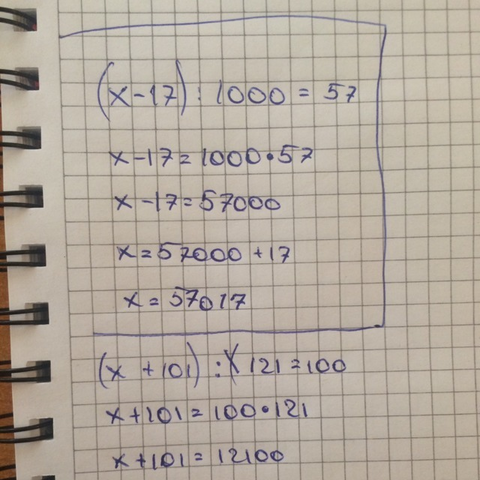 (x-17) : 1000 = 57
x-17=1000•57
x-17=57000
x=57000+17
x=57017
(x+101) : 121=100
x+101=100•121
x+101=12100